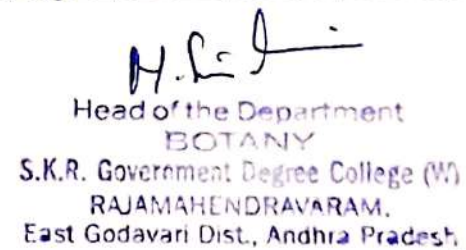 Head of the Department
BOTANY
S.K.R. Government Degree College (W)
RAJAMAHENDRAVARAM.
East Godavari Dist., Andhra Pradesh